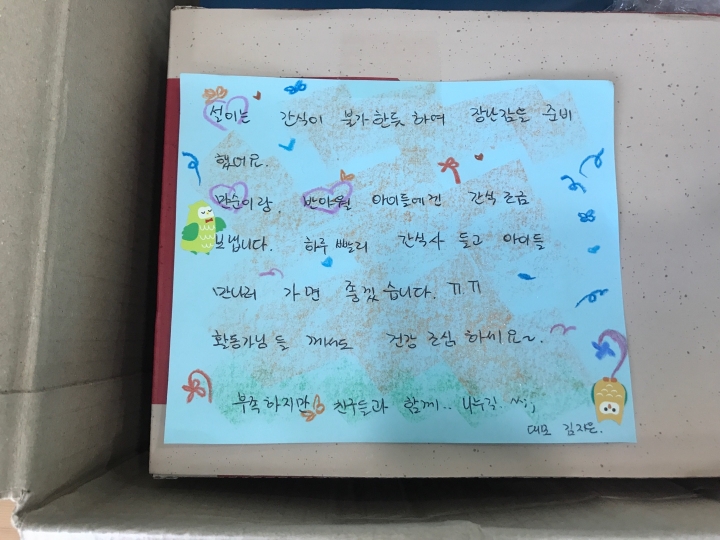 설이는 간식이 불가한듯 하여 장난감을 준비
했어요.
만순이랑, 반야월 아이들에겐 간식 조금
보냅니다. 하루 빨리 간식사 들고 아이들
만나러 가면 좋겠습니다. ㅠㅠ
활동가님들 께서도 건강 조심 하세요~.
부족하지만 친구들과 함께.. 나누길. ^^;;
대모 김지은.